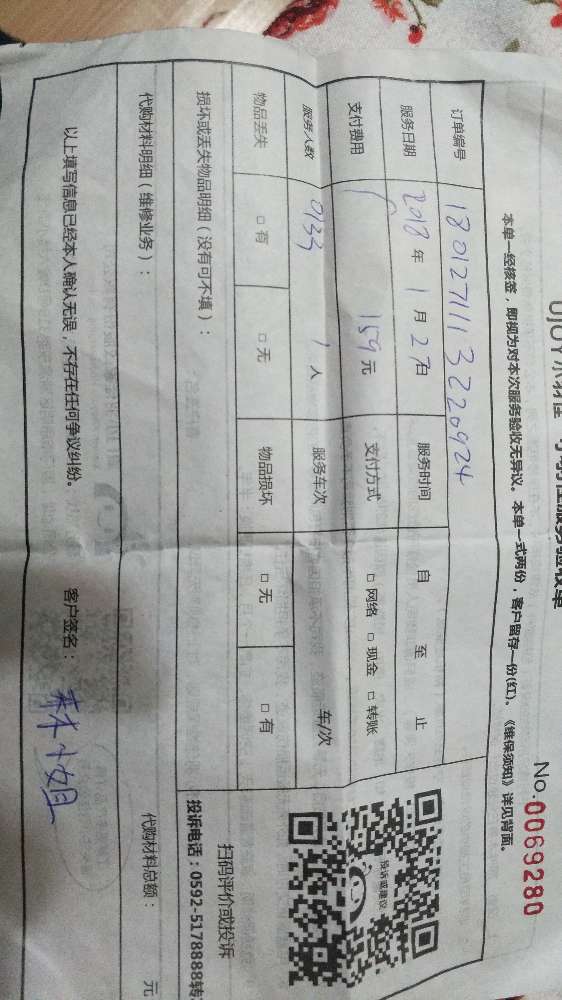 No.0069280
本单一经核签，即视为对本次服务验收无异议。本单一式两份，客户留存一份(红)。《维保须知》详见背面。
订单编号 1801271113220924
服务日期 2018年1月27日 服务时间 自 至 止
支付费用 159元 支付方式 □网络 □现金 □转账
服务人数 0133 1人 服务车次 车/次
物品丢失 □有 □无 物品损坏 □无 □有
投诉或建议
扫码评价或投诉
投诉电话：0592-5178888转
损坏或丢失物品明细（没有可不填）：
代购材料明细（维修业务）：
代购材料总额： 元
以上填写信息已经本人确认无误，不存在任何争议纠纷。 客户签名： 林小姐